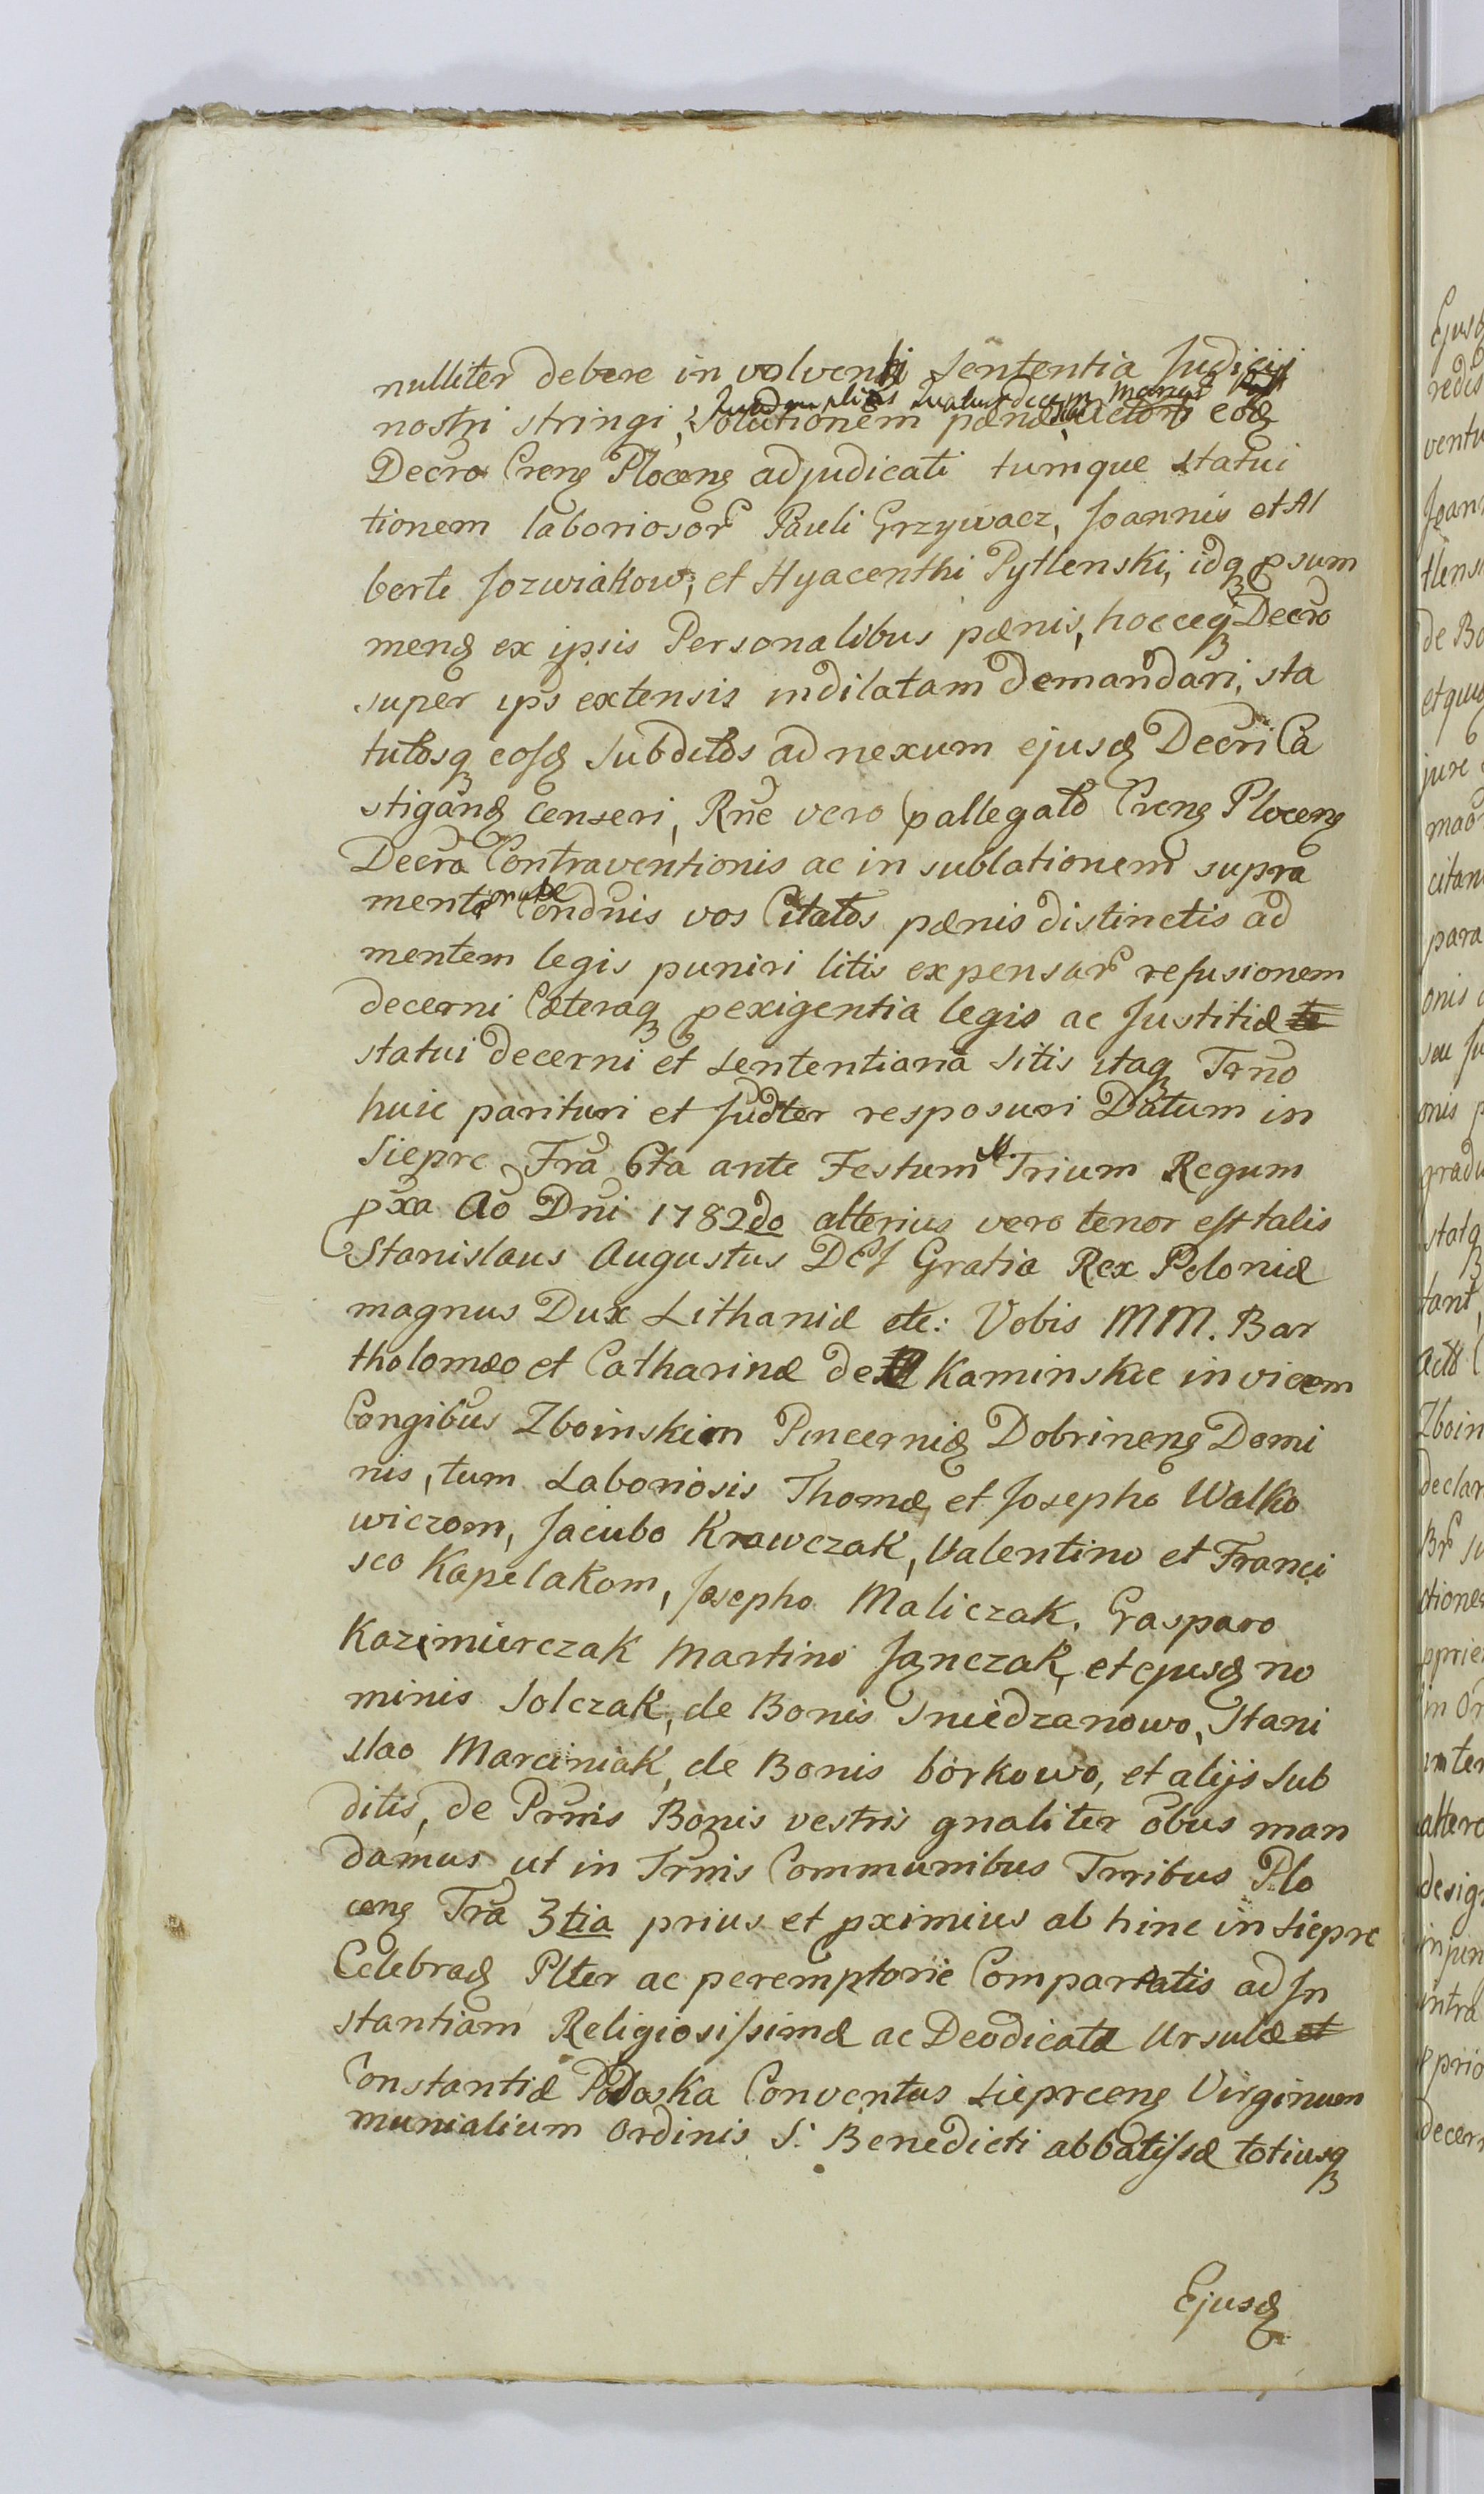 nulliter debere in volventi Sententia Judicij
quadruplicis quatuordecim marcas
nostri stringi, Solutionem pænæ Actori eod
Decro Creng Ploceng adjudicati tumque statui
tionem laboriosor Pauli Grzywacz, Joannis et Al
berti Jozwiakow, et Hyacenthi Pytlenski, idq psum
mend ex ipsis Personalibus pænis, hocceq Decro
super ips extensis indilatam demandari, sta
tutosq eosd Subditos ad nexum ejusd Decri Ca
stigand censeri, Rne vero pallegato Creng Ploceng
Decro Contraventionis ac in sublationem supra
mentõ Conduis vos Citatos pænis distinctis ad
mentem legis puniri litis expensar refusionem
decerni Cæteraq pexigentia legis ac Justitiæ
statui decerni et Sententiana Sitis itaq Trno
huic parituri et Judter resposuri Datum in
Siepre Fra 6ta ante Festum Trium Regum
pxa Ao Dni 1782do alterius vero tenor est talis
Stanislaus Augustus DEI Gratia Rex Poloniæ
magnus Dux Lithaniæ etc: Vobis MM. Bar
tholomæo et Catharinæ de Kaminskie in vicem
Congibus Zboinskim Pincernid Dobrineng Domi
nis, tum Laboriosis Thomæ, et Josepho Walko
wiczom, Jacubo Krawczak, Valentino et Franci
sco Kapelakom, Josepho Maliczak, Grasparo
Kazimierczak Martino Janczak, et ejusd no
minis Solczak, de Bonis Sniedzanowo, Stani
slao Marciniak, de Bonis borkowo, et alijs Sub
ditis, de Prmis Bonis vestris gnaliter obus man
damus ut in Trmis Communibus Trribus Plo
ceng Fra 3tia prius et pximius ab hinc in Siepre
Celebrad Plter ac peremptorie Compareatis ad In
stantiam Religiosissimæ ac Deodicatæ Ursulæ et
Constantiæ Podoska Conventus Siepreceng Virginum
munialium Ordinis S: Benedicti abbatissæ totiusq
Ejusd